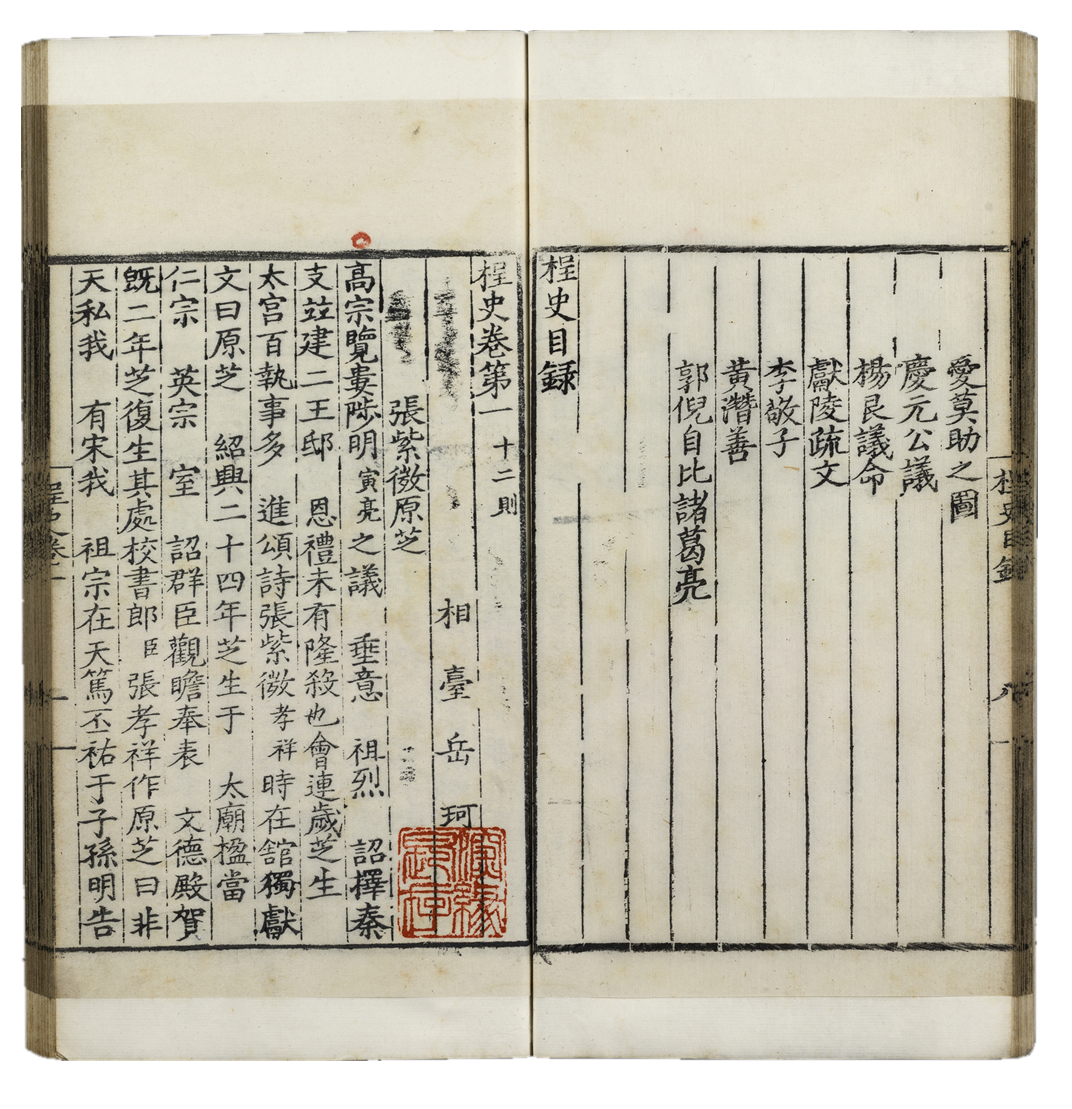 愛莫助之圖
慶元公議
楊艮議命
獻陵疏文
李敬子
黃潛善
郭倪自比諸葛亮
桯史目録
桯史卷第一 十二則
相臺岳珂
張紫微原芝
高宗覽婁陟明寅亮之議 垂意 祖烈 詔擇秦
支竝建二王邸 恩禮未有隆殺也會連歲芝生
太宫百執事多 進頌詩張紫微孝祥時在舘獨獻
文曰原芝 紹興二十四年芝生于 太廟楹當
仁宗 英宗 室 詔群臣觀瞻奉表 文德殿賀
旣二年芝復生其處校書郎臣張孝祥作原芝曰非
天私我 有宋我 祖宗在天篤丕祐于子孫明告